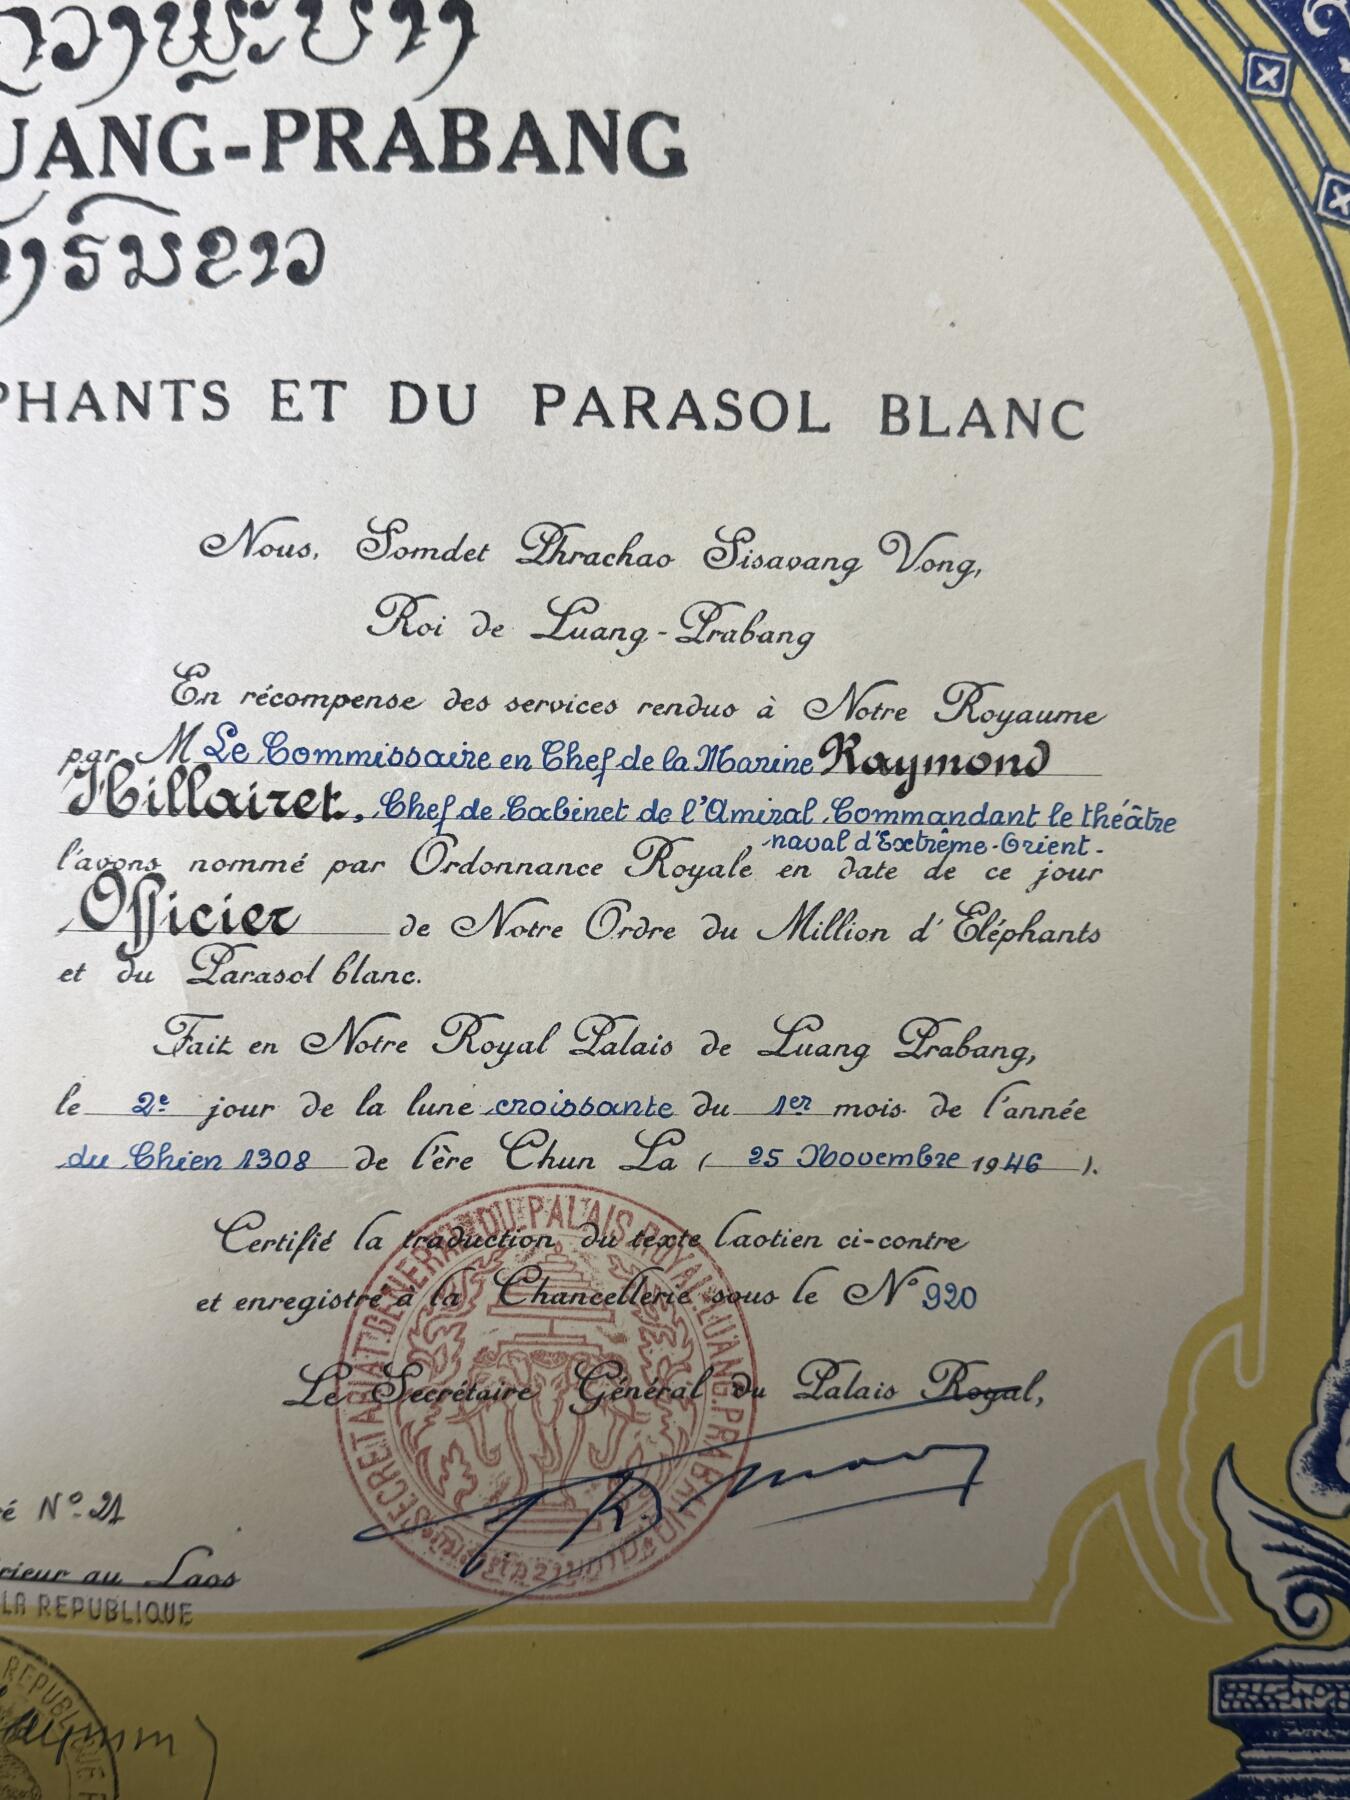 ວງພຼະບາງ
UANG-PRABANG
ງຮົ່ມຂາວ
PHANTS ET DU PARASOL BLANC
Nous, Somdet Phrachao Sisavang Vong,
Roi de Luang-Prabang
En récompense des services rendus à Notre Royaume
par M Le Commissaire en Chef de la Marine Raymond
Hillairet, Chef de Cabinet de l'Amiral Commandant le théâtre
naval d'Extrême-Orient-
l'avons nommé par Ordonnance Royale en date de ce jour
Officier de Notre Ordre du Million d'Eléphants
et du Parasol blanc.
Fait en Notre Royal Palais de Luang Prabang,
le 2e jour de la lune croissante du 1er mois de l'année
du Chien 1308 de l'ère Chun La ( 25 Novembre 1946 ).
Certifié la traduction du texte laotien ci-contre
et enregistré à la Chancellerie sous le N° 920
Le Secrétaire Général du Palais Royal,
SECRETARIAT GENERAL DU PALAIS ROYAL LUANG PRABANG
é N° 21
rieur au Laos
LA REPUBLIQUE
REPUBLIQUE F